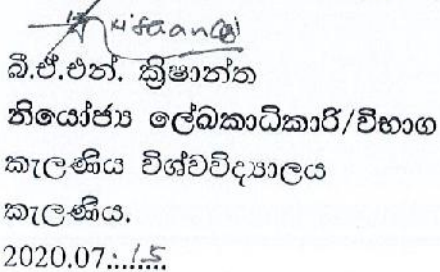 බී.ඒ.එන්. ක්‍රිෂාන්ත
නියෝජ්‍ය ලේඛකාධිකාරි/විභාග
කැලණිය විශ්වවිද්‍යාලය
කැලණිය.
2020.07.:.15